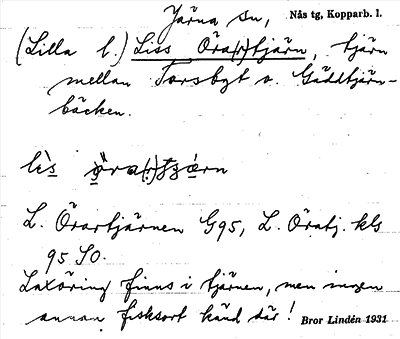 Järna sn, Nås tg, Kopparb. l.
(Lilla l.) Liss Öra(r)tjärn, tjärn
mellan Torsbyt o. Gäddtjärn-
bäcken.
L. Örartjärnen G95, L. Öratj. kls
95 SO.
Laxöring finns i tjärnen, men ingen
annan fisksort känd där! Bror Lindén 1931